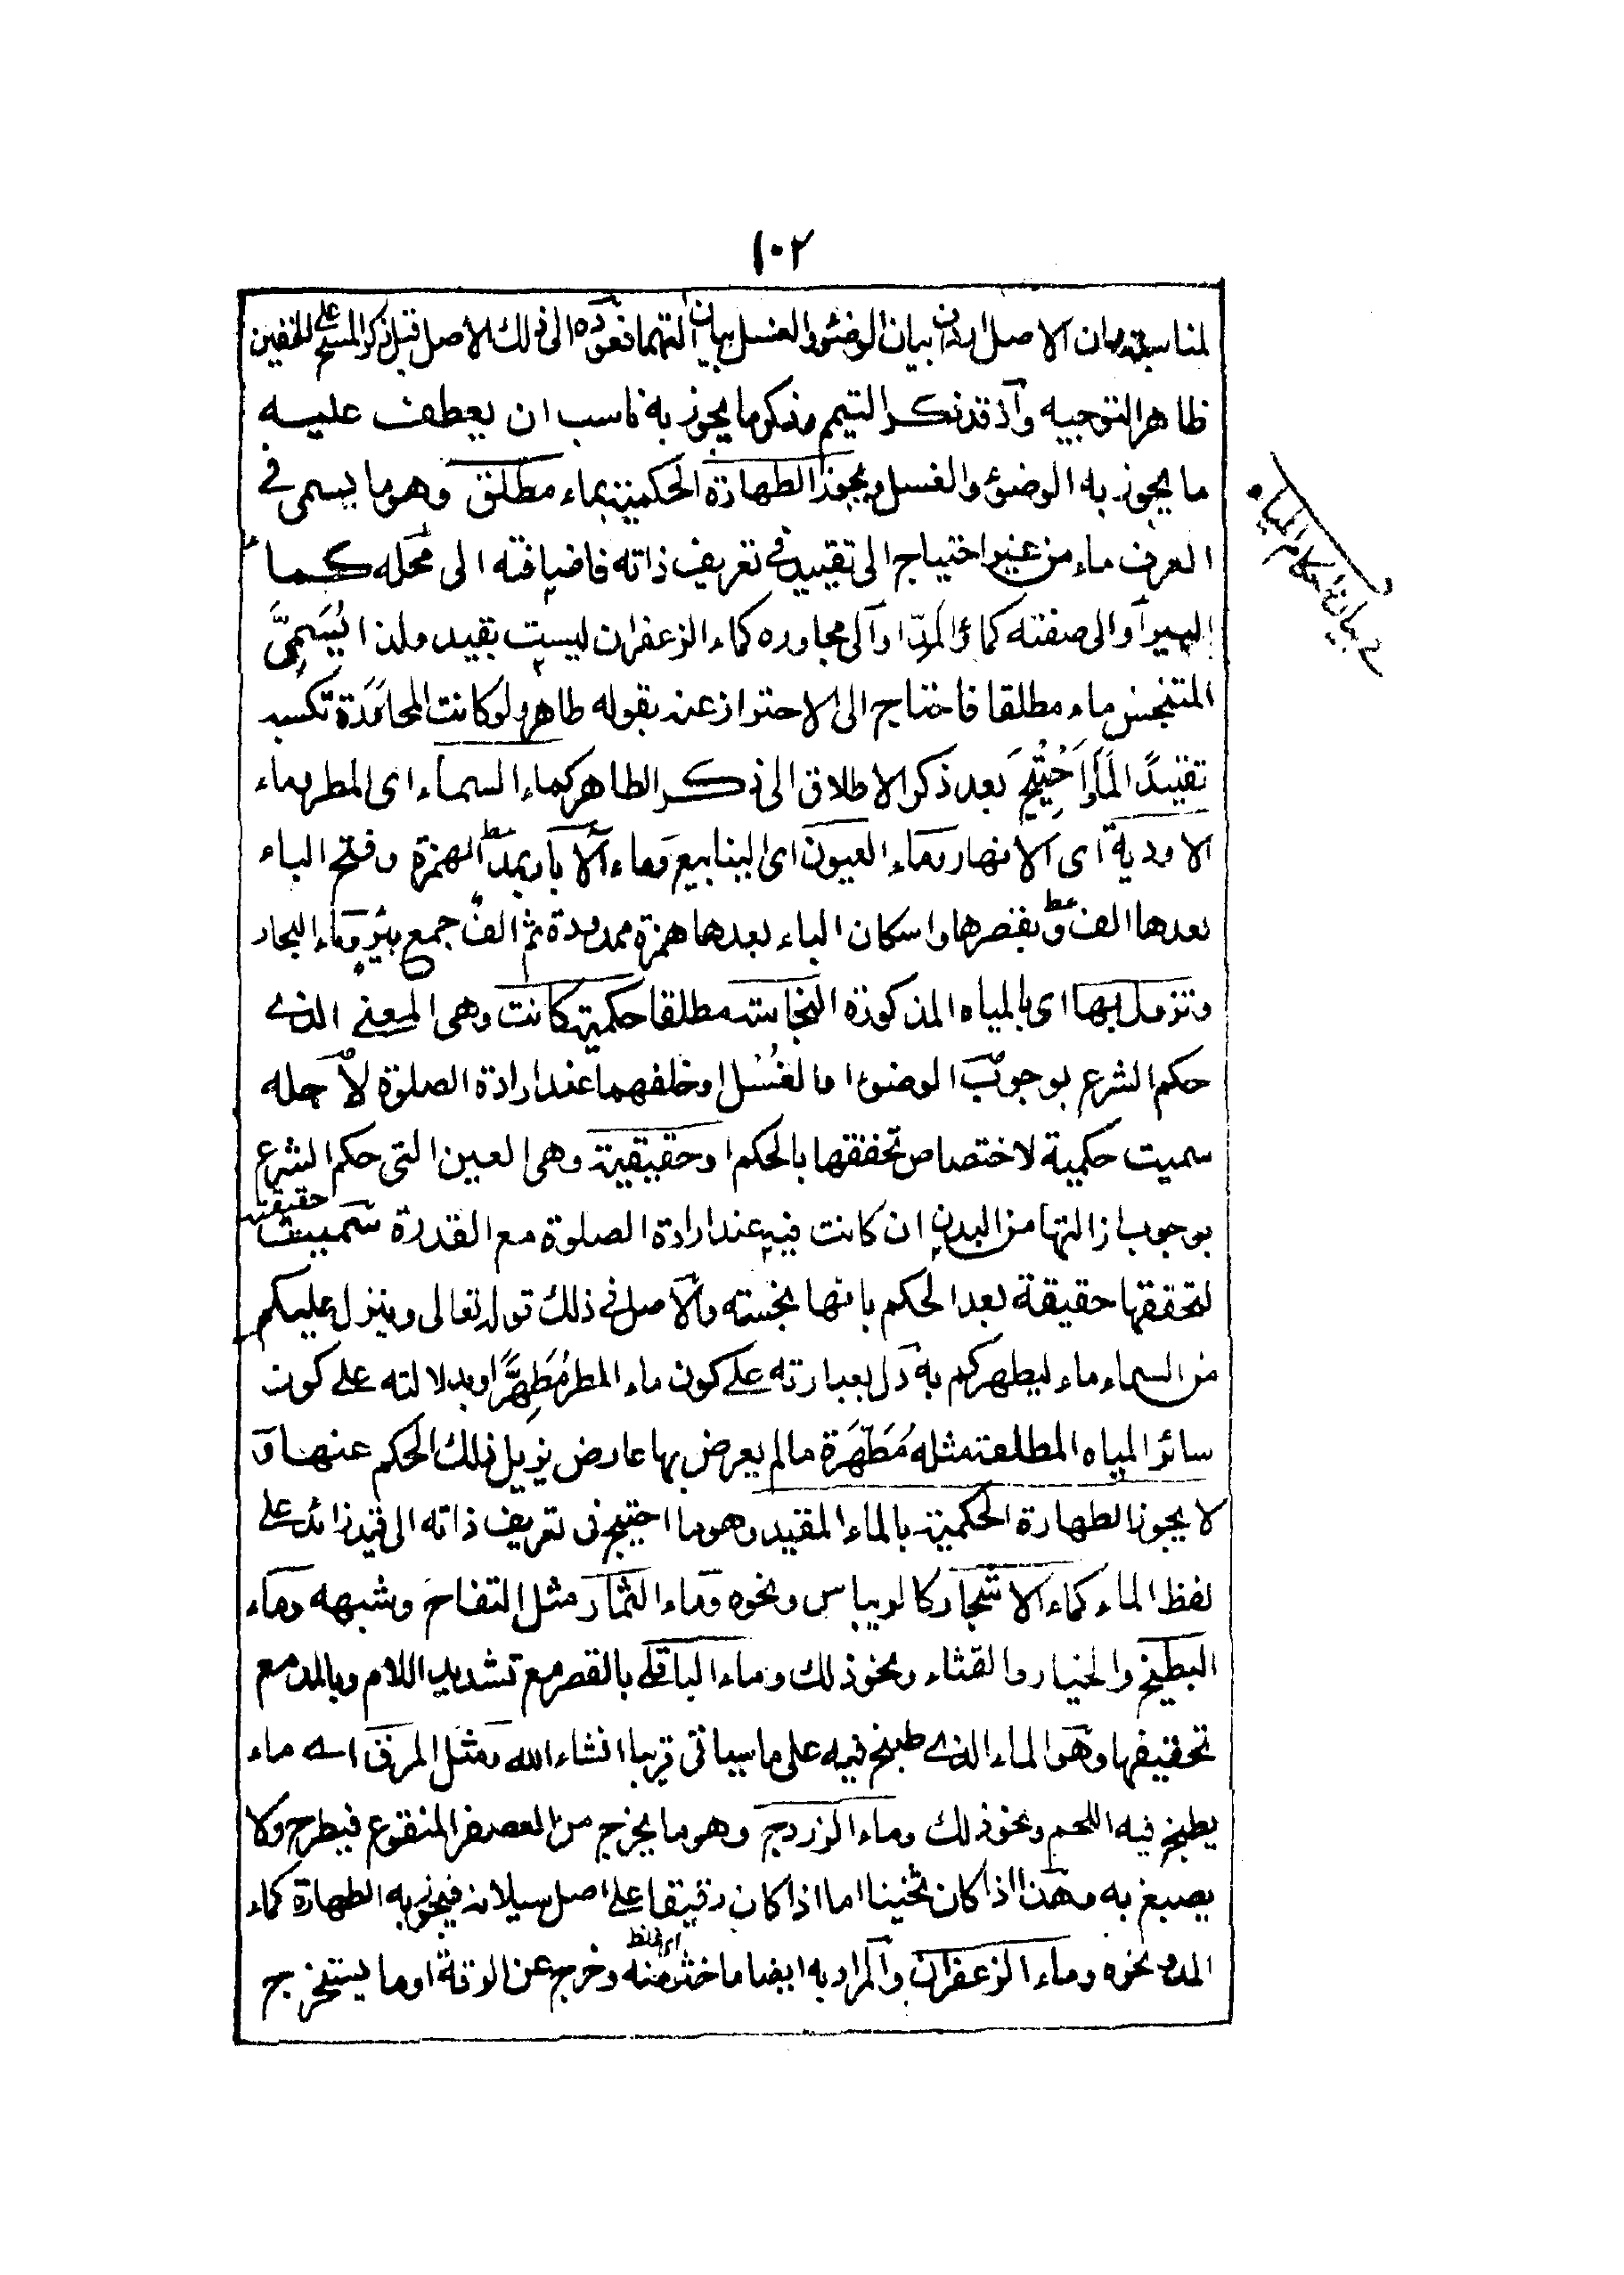 ١٠٢
لمناسبته وان الاصل بيان الوضوء والغسل بيان التيمم فعوده الى ذلك الاصل قبل ذكر المسح على الخفين
ظاهر التوجيه واذ قد ذكر التيمم وذكر ما يجوز به ناسب ان يعطف عليه
ما يجوز به الوضوء والغسل ويجوز الطهارة الحكمية بماء مطلق وهو ما يسمى في
العرف ماء من غير احتياج الى تقييد في تعريف ذاته فاضافته الى محله كماء
البير او الى صفته كماء المد او الى مجاوره كماء الزعفران ليست بقيد ولذا يُسَمَّى
المتنجس ماء مطلقا فاحتاج الى الاحتراز عنه بقوله طاهر ولو كانت المجاورة تكسبه
تقييدًا لَمَا اُحْتِيجَ بعد ذكر الاطلاق الى ذكر الطاهر كماء السماء اى المطر وماء
الاودية اى الانهار وماء العيون اى الينابيع وماء الآبار بمد الهمزة وفتح الباء
بعدها الف وبقصرها واسكان الباء بعدها همزة ممدودة ثم الف جمع بئر وماء البحار
وتزول بها اى بالمياه المذكورة النجاسة مطلقا حكمية كانت وهى المعنى الذى
حكم الشرع بوجوب الوضوء او الغُسْل او خلفهما عند ارادة الصلوة لاجله
سميت حكمية لاختصاص تحققها بالحكم او حقيقية وهى العين التى حكم الشرع
بوجوب ازالتها من البدن ان كانت فيه عند ارادة الصلوة مع القدرة سميت حقيقية
لتحققها حقيقة بعد الحكم بانها نجسته والاصل فى ذلك قوله تعالى وينزل عليكم
من السماء ماء ليطهركم به دل بعبارته على كون ماء المطر مُطَهِّرًا وبدلالته على كون
سائر المياه المطلقة مثله مُطَهِّرَة ما لم يعرض بها عارض يزيل ذلك الحكم عنها و
لا يجوز الطهارة الحكمية بالماء المقيد وهو ما احتيج فى تعريف ذاته الى قيد زائد على
لفظ الماء كماء الاشجار كالريباس ونحوه وماء الثمار مثل التفاح وشبهه وماء
البطيخ والخيار والقثاء ونحو ذلك وماء الباقلى بالقصر مع تشديد اللام وبالمد مع
تخفيفها وهو الماء الذى طبخ فيه على ما سياتى قريبا انشاء الله ومثل المرق اى ماء
يطبخ فيه اللحم ونحو ذلك وماء الزردج وهو ما يخرج من العصفر المنقوع فيطرح ولا
يصبغ به وهذا اذا كان ثخينا اما اذا كان رقيقا على اصل سيلانه فيجوز به الطهارة كماء
المد ونحوه وماء الزعفران والمراد به ايضا ما خثر منه وخرج عن الرقة او ما يستخرج
بيان احكام المياه